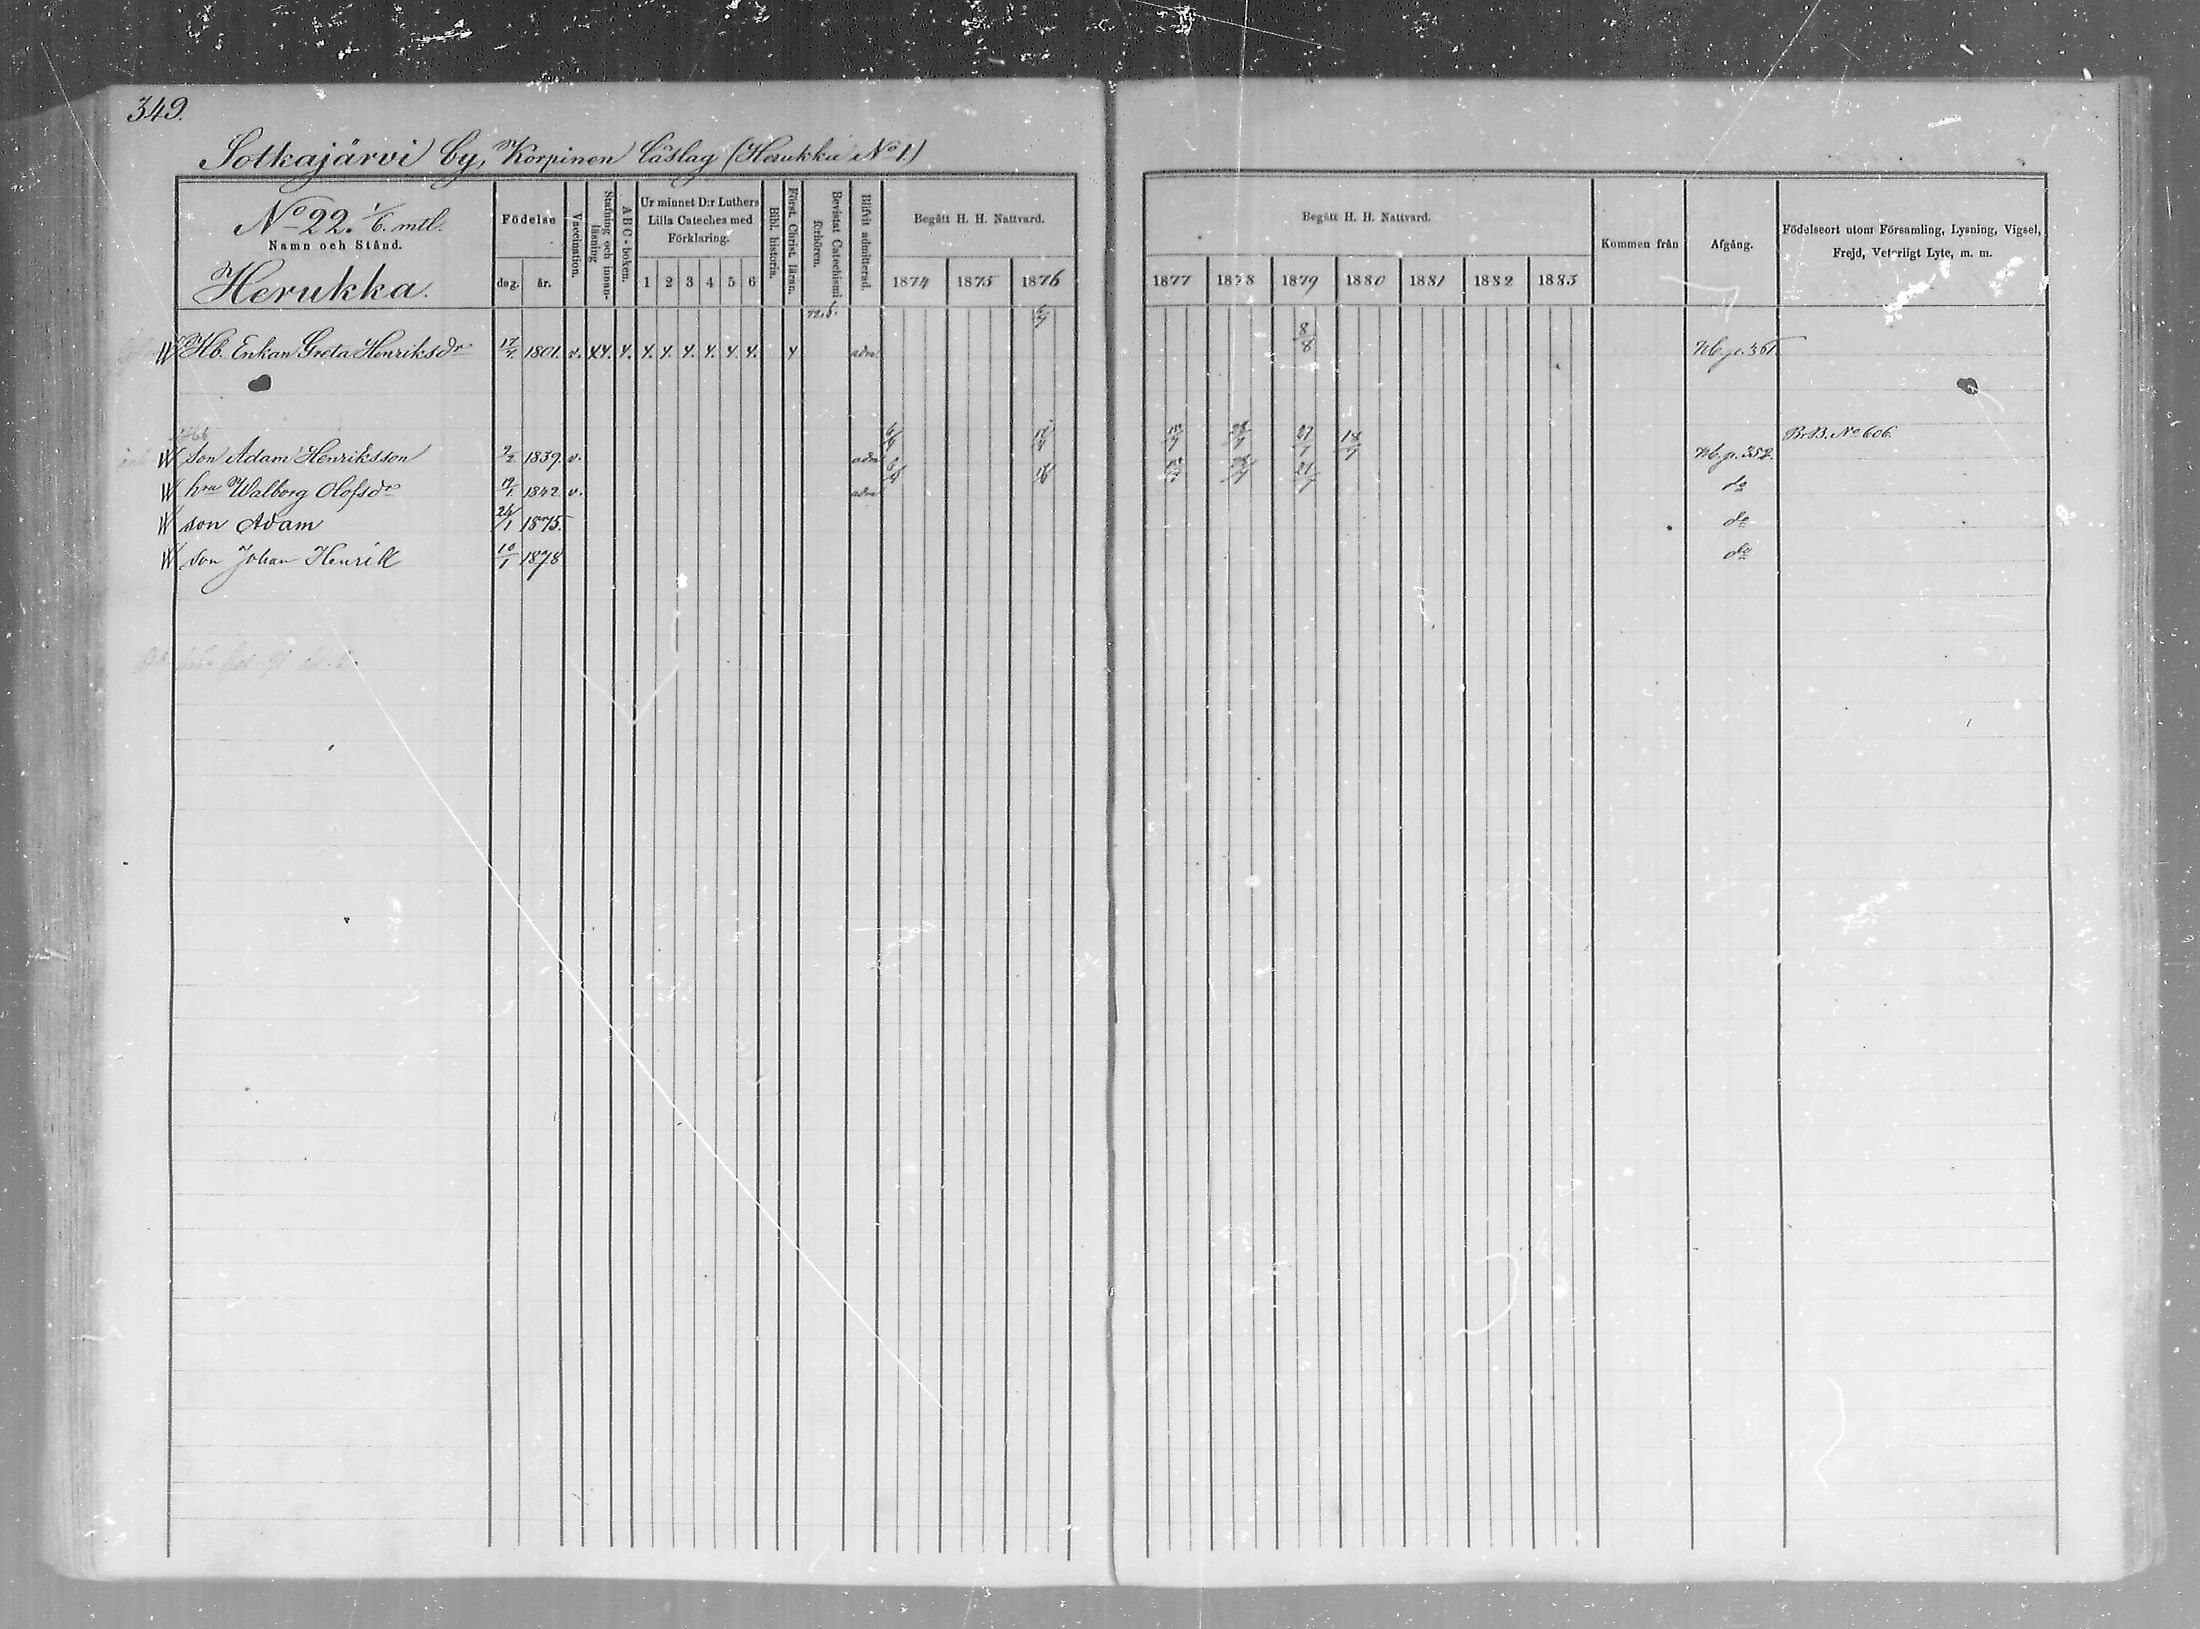 349.
Sotkajärvi by, Korpinen Läslag (Herukka No 1)
No 22. 1/6. mtl.
Namn och Stånd.
Herukka.
Födelse
dag. år.
Vaccination.
Stafning och innan-läsning
ABC-boken.
Ur minnet D:r Luthers Lilla Cateches med Förklaring.
1 2 3 4 5 6
Bibl. historia.
Först. Christ. läran.
Bevistat Catechismi förhören.
Blifvit admitterad.
Begått H. H. Nattvard.
1874 1875 1876
Begått H. H. Nattvard.
1877 1878 1879 1880 1881 1882 1883
Kommen från
Afgång.
Födelseort utom Församling, Lysning, Vigsel, Frejd, Veterligt Lyte, m. m.
Hb. Enkan Greta Henriksdr 1801. v. adm 8/8 Nb. p. 361.
Br.B. No 606.
Son Adam Henriksson 1839. v. adm 18/7 Nb. p. 352.
hru Walborg Olofsdr 1842 v. adm do
son Adam 26/1 1875. do
son Johan Henrik 10/1 1878 do